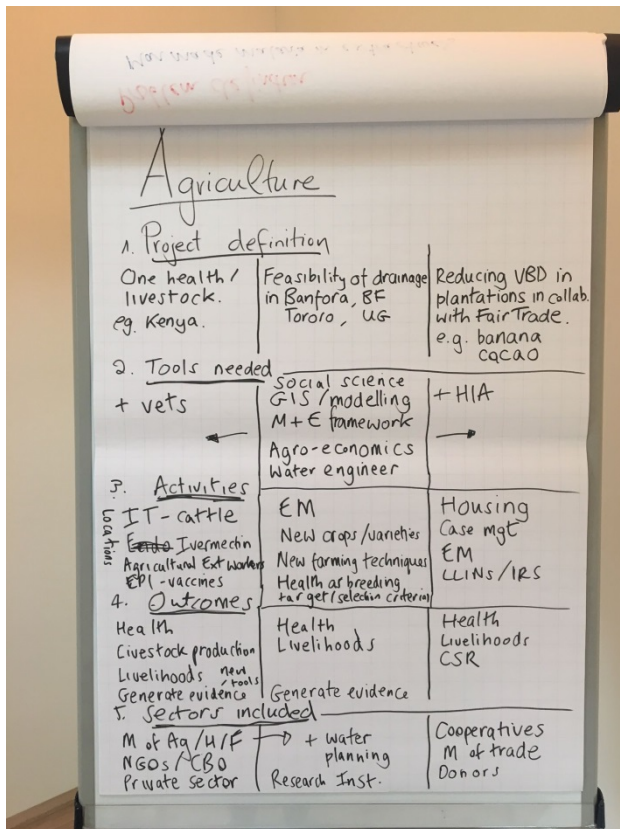 Problem definition
Agriculture
1. Project definition
One health/
livestock.
eg. Kenya.
Feasibility of drainage
in Banfora, BF
Tororo, UG
Reducing VBD in
plantations in collab.
with FairTrade.
e.g. banana
cacao
2. Tools needed
+ vets
Social science
GIS/modelling
M+E framework
←
→
Agro-economics
Water engineer
+ HIA
3. Activities
Locations
IT-cattle
Ivermectin
Agricultural Ext workers
EPI-vaccines
EM
New crops/varieties
New farming techniques
Health as breeding
target/selection criteria
Housing
Case mgt
EM
LLINs/IRS
4. Outcomes
Health
Livestock production
Livelihoods new
/tools
Generate evidence
Health
Livelihoods
Generate evidence
Health
Livelihoods
CSR
5. Sectors included
M of Ag/H/F →
NGOs/CBO
Private sector
+ water
planning
Research Inst.
Cooperatives
M of trade
Donors